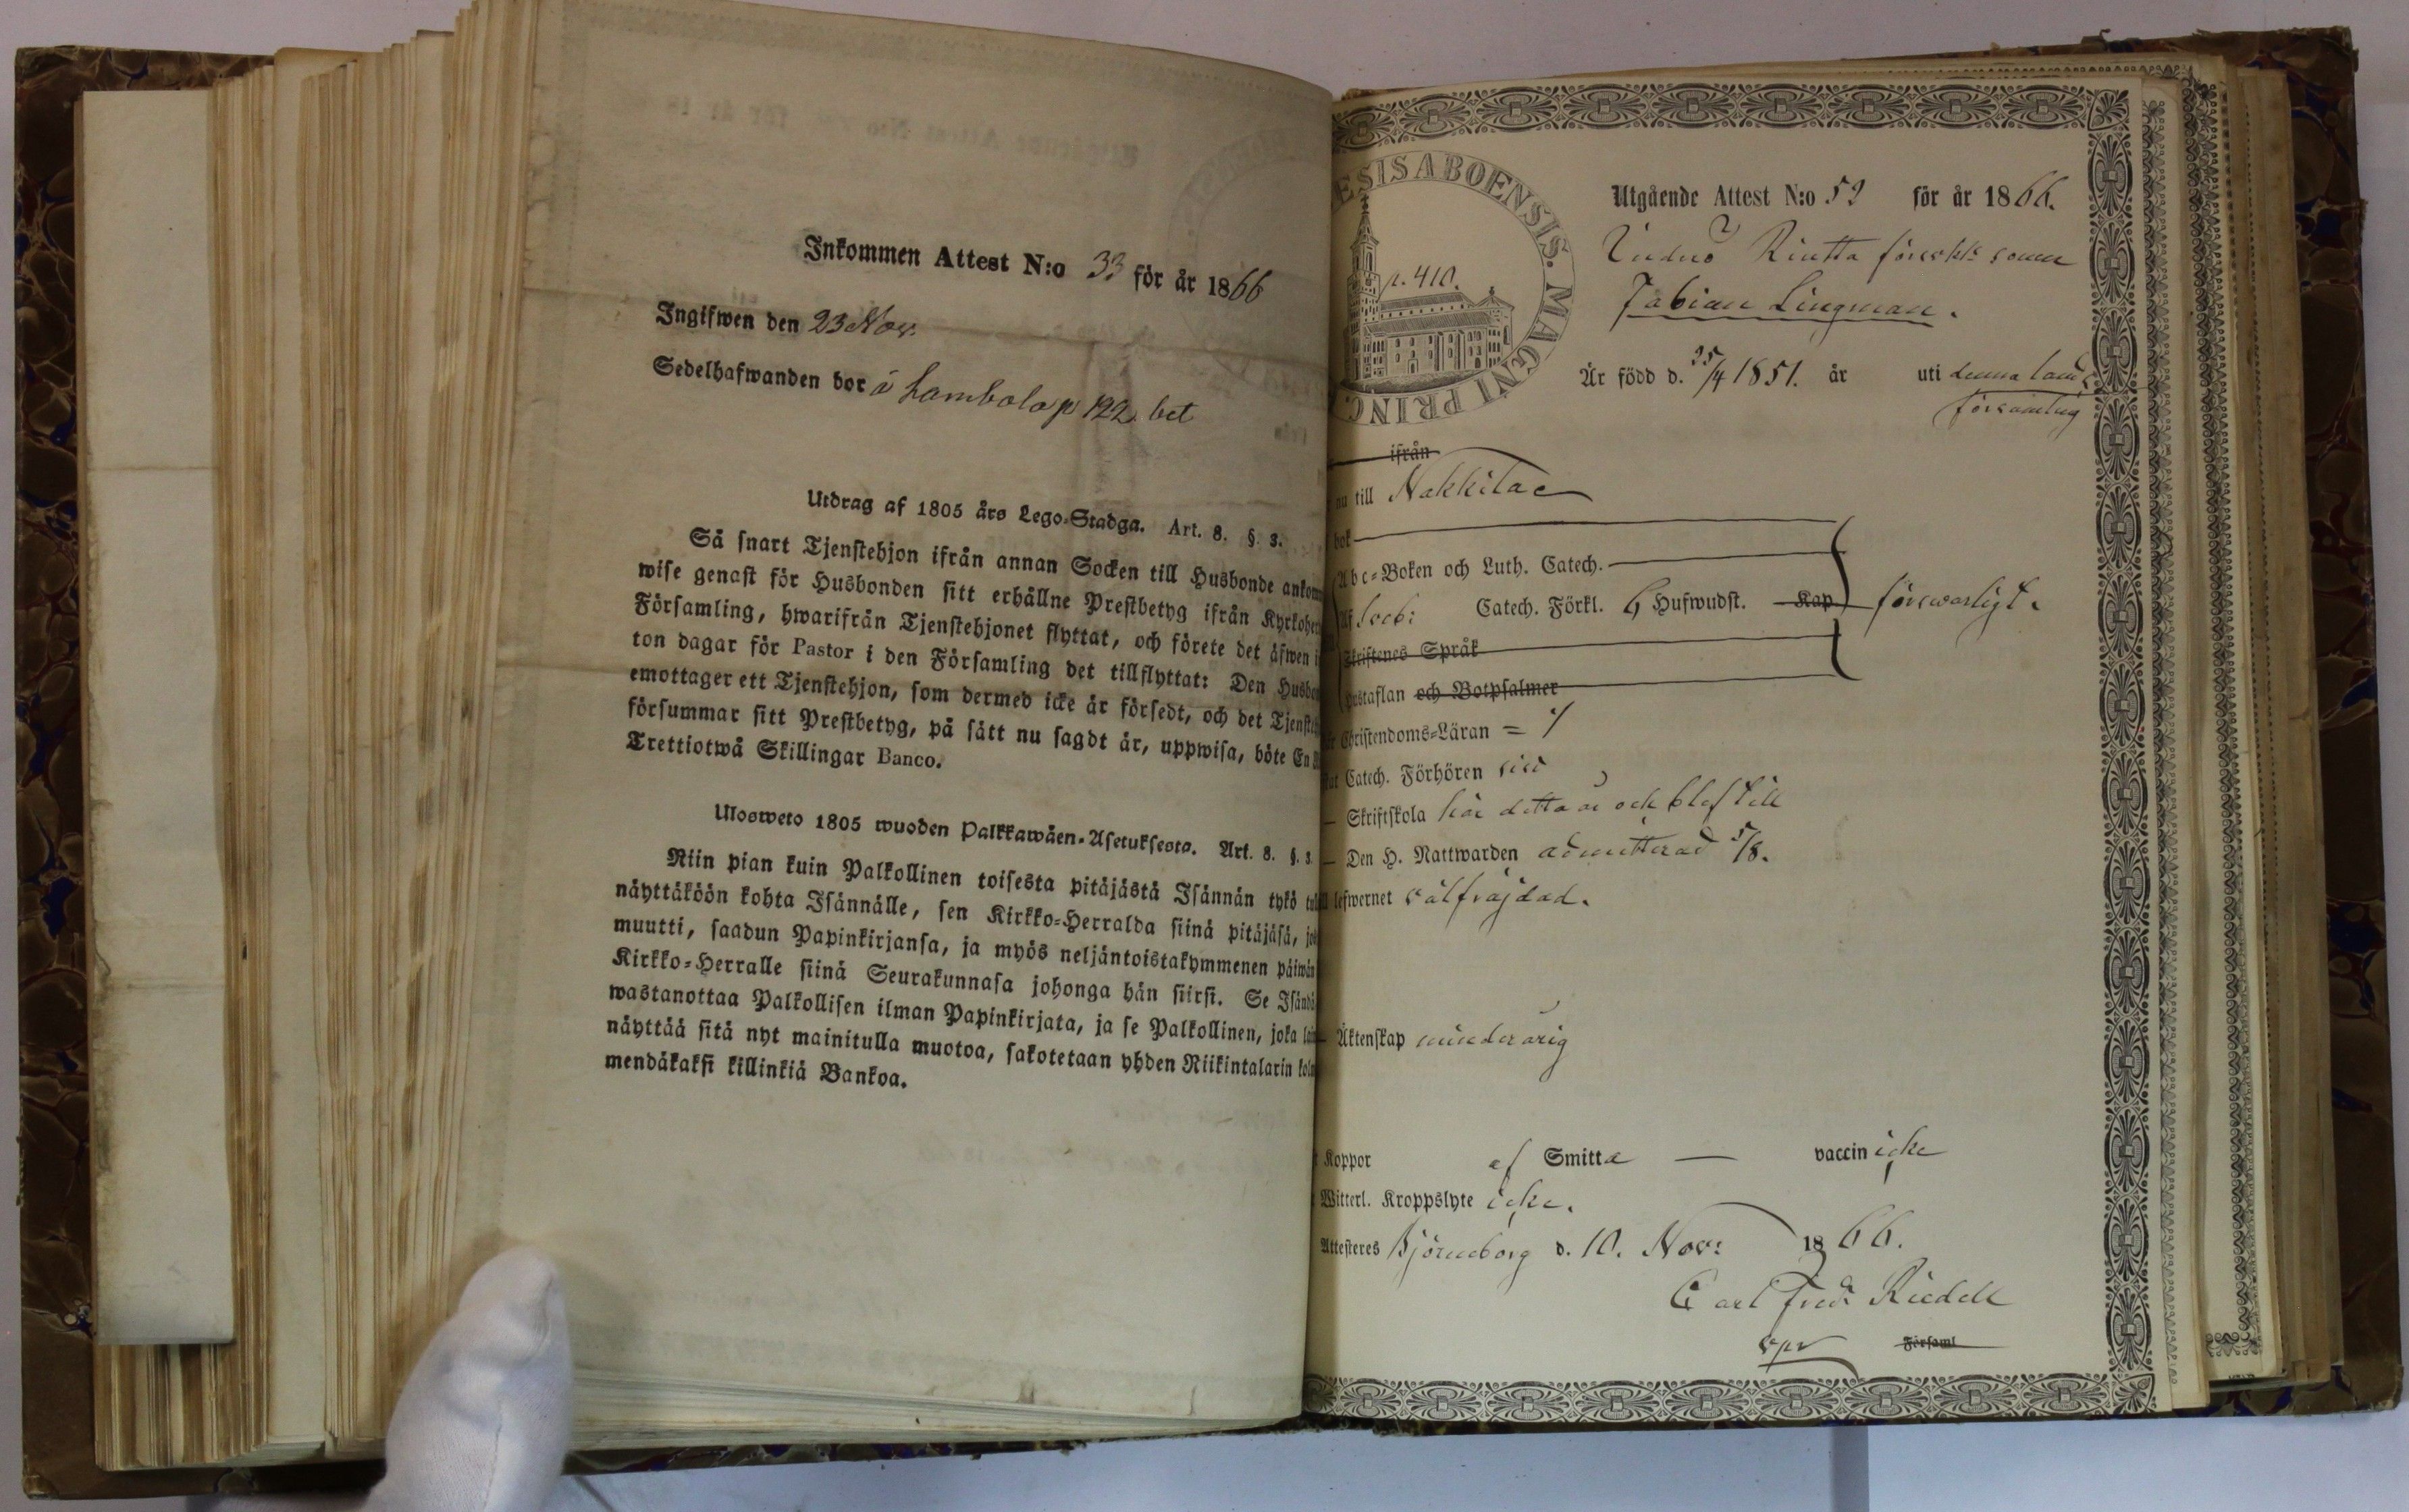 Inkommen Attest N:o 33 för år 1866
Ingifwen den 23 Nov.
Sedelhafwanden bor å Lambola p 122. bet
Utdrag af 1805 års Lego-Stadga. Art. 8. §. 3.
Så snart Tjenstehjon ifrån annan Socken till Husbonde ankom
wise genast för Husbonden sitt erhållne Prestbetyg ifrån Kyrkoher
Församling, hwarifrån Tjenstehjonet flyttat, och förete det äfwen i
ton dagar för Pastor i den Församling det tillflyttat: Den Husbon
emottager ett Tjenstehjon, som dermed icke är försedt, och det Tjenste
försummar sitt Prestbetyg, på sätt nu sagdt är, uppwisa, böte En
Trettiotwå Skillingar Banco.
Ulosweto 1805 wuoden Palkkawäen-Asetuksesta. Art. 8. §. 3.
Niin pian kuin Palkollinen toisesta pitäjästä Isännän tykö tul
näyttäköön kohta Isännälle, sen Kirkko-Herralda siinä pitäjäsä, jo
muutti, saadun Papinkirjansa, ja myös neljäntoistakymmenen päiwän
Kirkko-Herralle siinä Seurakunnasa johonga hän siirsi. Se Isändä
wastanottaa Palkollisen ilman Papinkirjata, ja se Palkollinen, joka
näyttää sitä nyt mainitulla muotoa, sakotetaan yhden Riikintalarin kolm
mendäkaksi killinkiä Bankoa.
ESIS ABOENSIS. MAGNI PRINC
p. 410.
Utgående Attest N:o 52 för år 1866.
Rintta sonen
Fabian Lingman.
Är född d. 25/4 1851. år uti denna lands
församling
ifrån
nu till Nakkila
bok
Abc-Boken och Luth. Catech.
Sveb: Catech. Förkl. 6 Hufwudst. Kap. förswarligt.
Skriftenes Språk
Hustaflan och Botpsalmer
Christendoms-Läran = /
Catech. Förhören
Skriftskola här detta år och blef till
Den H. Nattwarden admitterad 5/8.
lefwernet välfräjdad.
Äktenskap minderårig
Koppor af Smitta — vaccin icke
Witterl. Kroppslyte icke.
Attesteres Björneborg d. 10. Nov: 1866.
Carl Fredr Riedell
vpr Församl